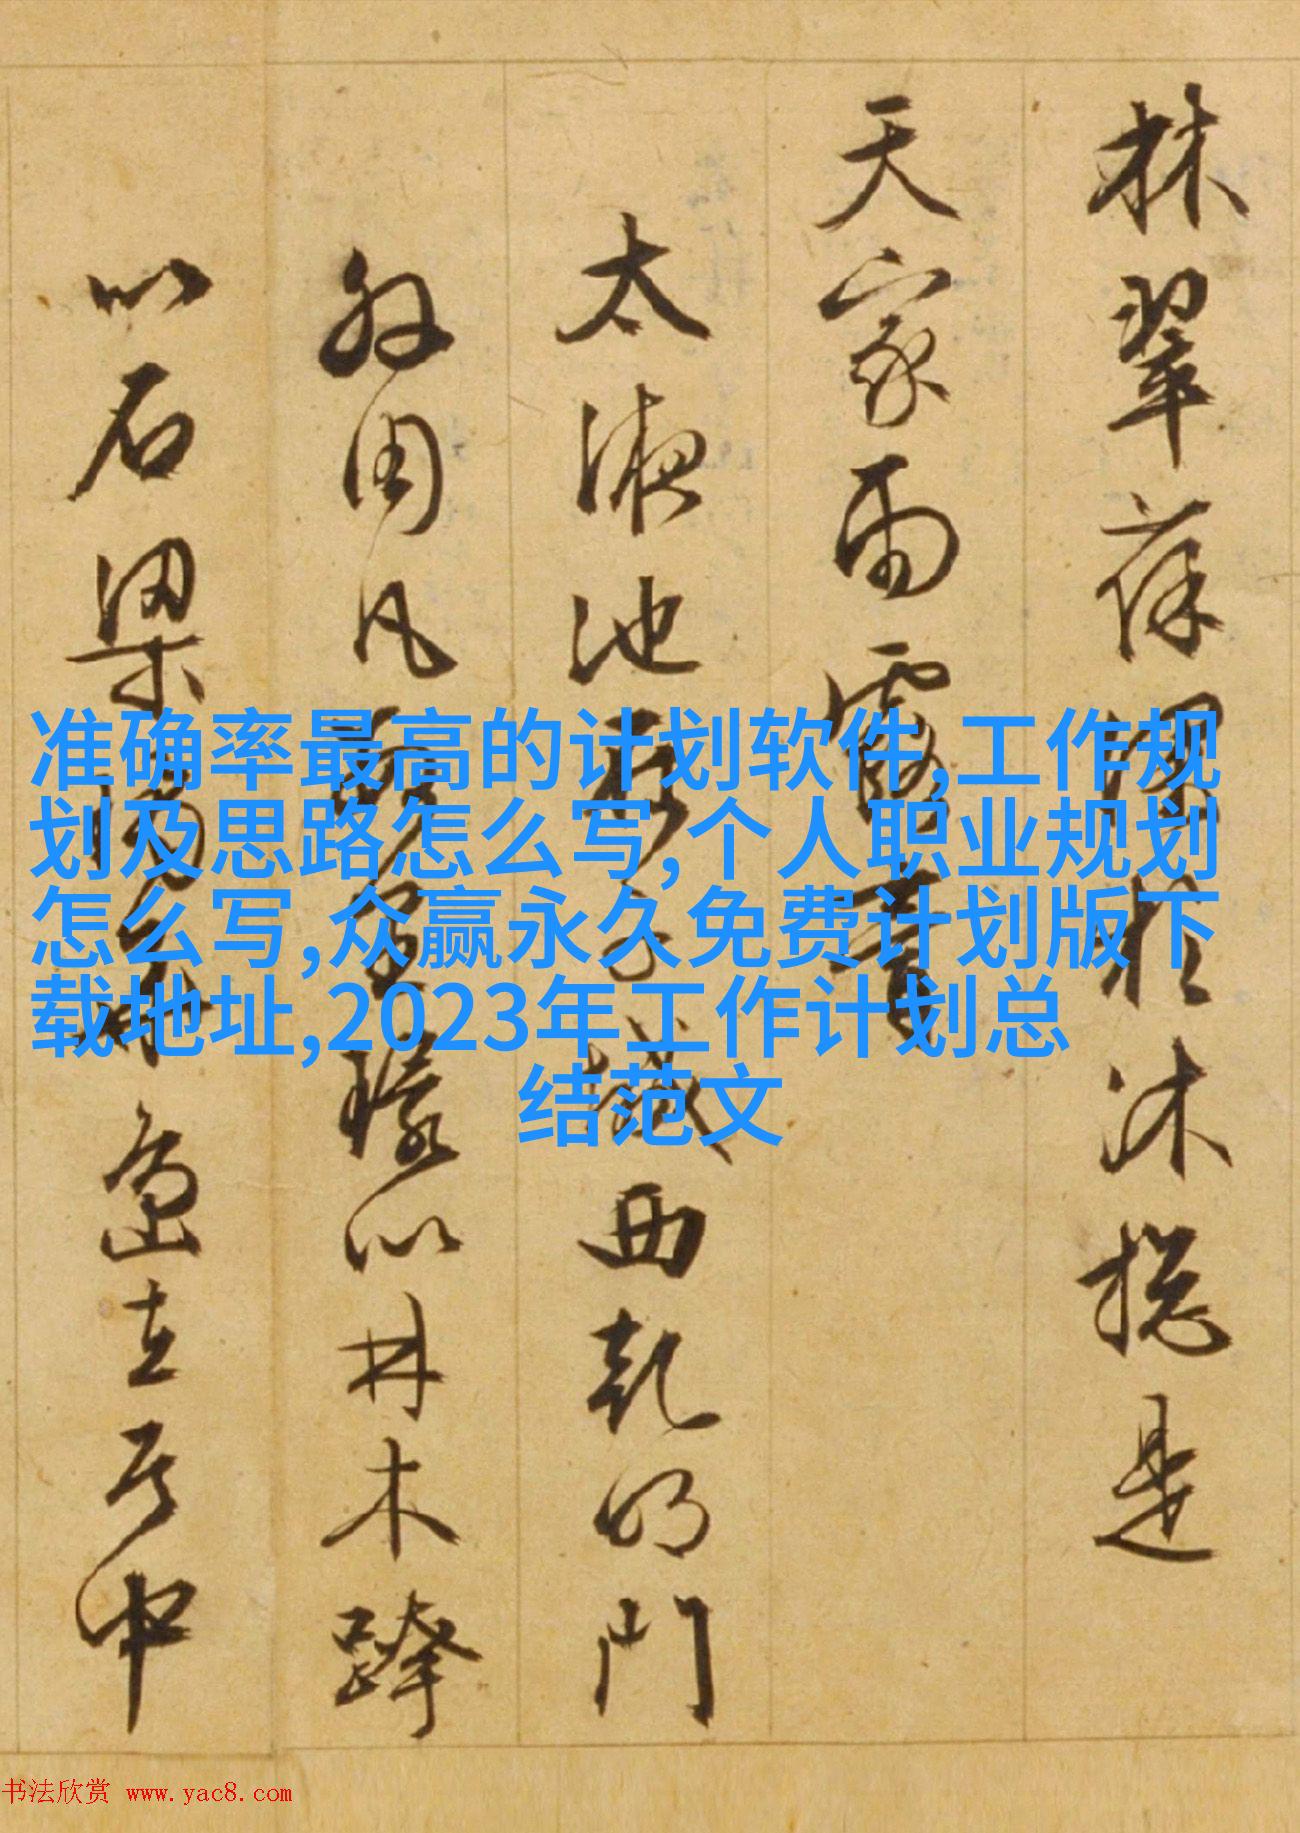 林翠葆深於沐摠是
天家雨露
太液池在子城西乾明門
外周凡數里環以林木跨
以石梁島立焉中
准确率最高的计划软件,工作规
划及思路怎么写,个人职业规划
怎么写,众赢永久免费计划版下
载地址,2023年工作计划总
结范文
书法欣赏 www.yac8.com